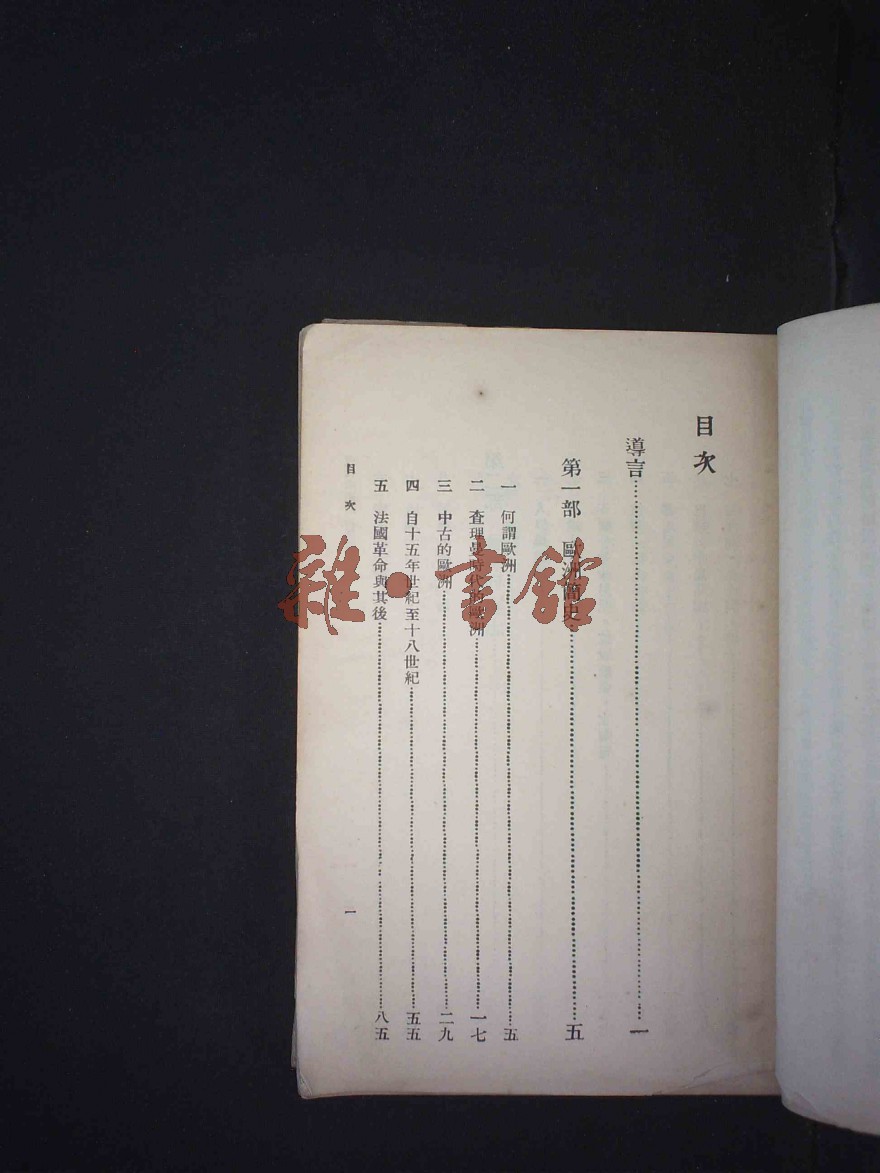 目次
導言……一
第一部　歐洲簡史……五
一　何謂歐洲……五
二　查理曼時代的歐洲……一七
三　中古的歐洲……二九
四　自十五年世紀至十八世紀……五五
五　法國革命與其後……八五
目次
一
雜·書館